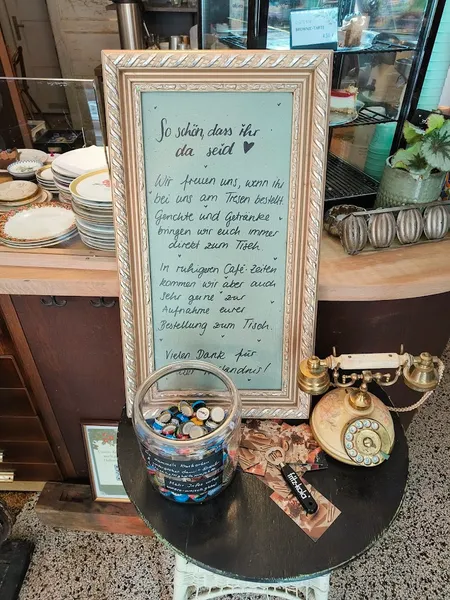 So schön, dass ihr
da seid ♥
Wir freuen uns, wenn ihr
bei uns am Tresen bestellt.
Gerichte und Getränke
bringen wir euch immer
direkt zum Tisch.
In ruhigeren Café-Zeiten
kommen wir aber auch
sehr gerne zur
Aufnahme eurer
Bestellung zum Tisch.
Vielen Dank für
fritz-kola